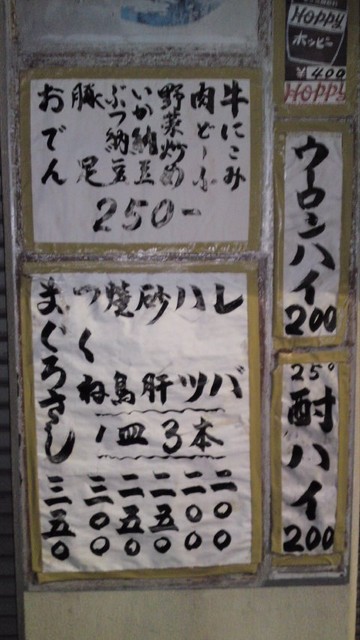 Hoppy
ホッピー
¥400
HOPPY
牛にこみ
肉どーふ
野菜炒め
いか納豆
ぶつ納豆
豚足
おでん
250-
ウーロンハイ
200
レバ 二〇〇
ハツ 二〇〇
砂肝 二五〇
焼鳥 二五〇
つくね 三〇〇
1皿3本
まぐろさし 三五〇
25°
酎ハイ
200